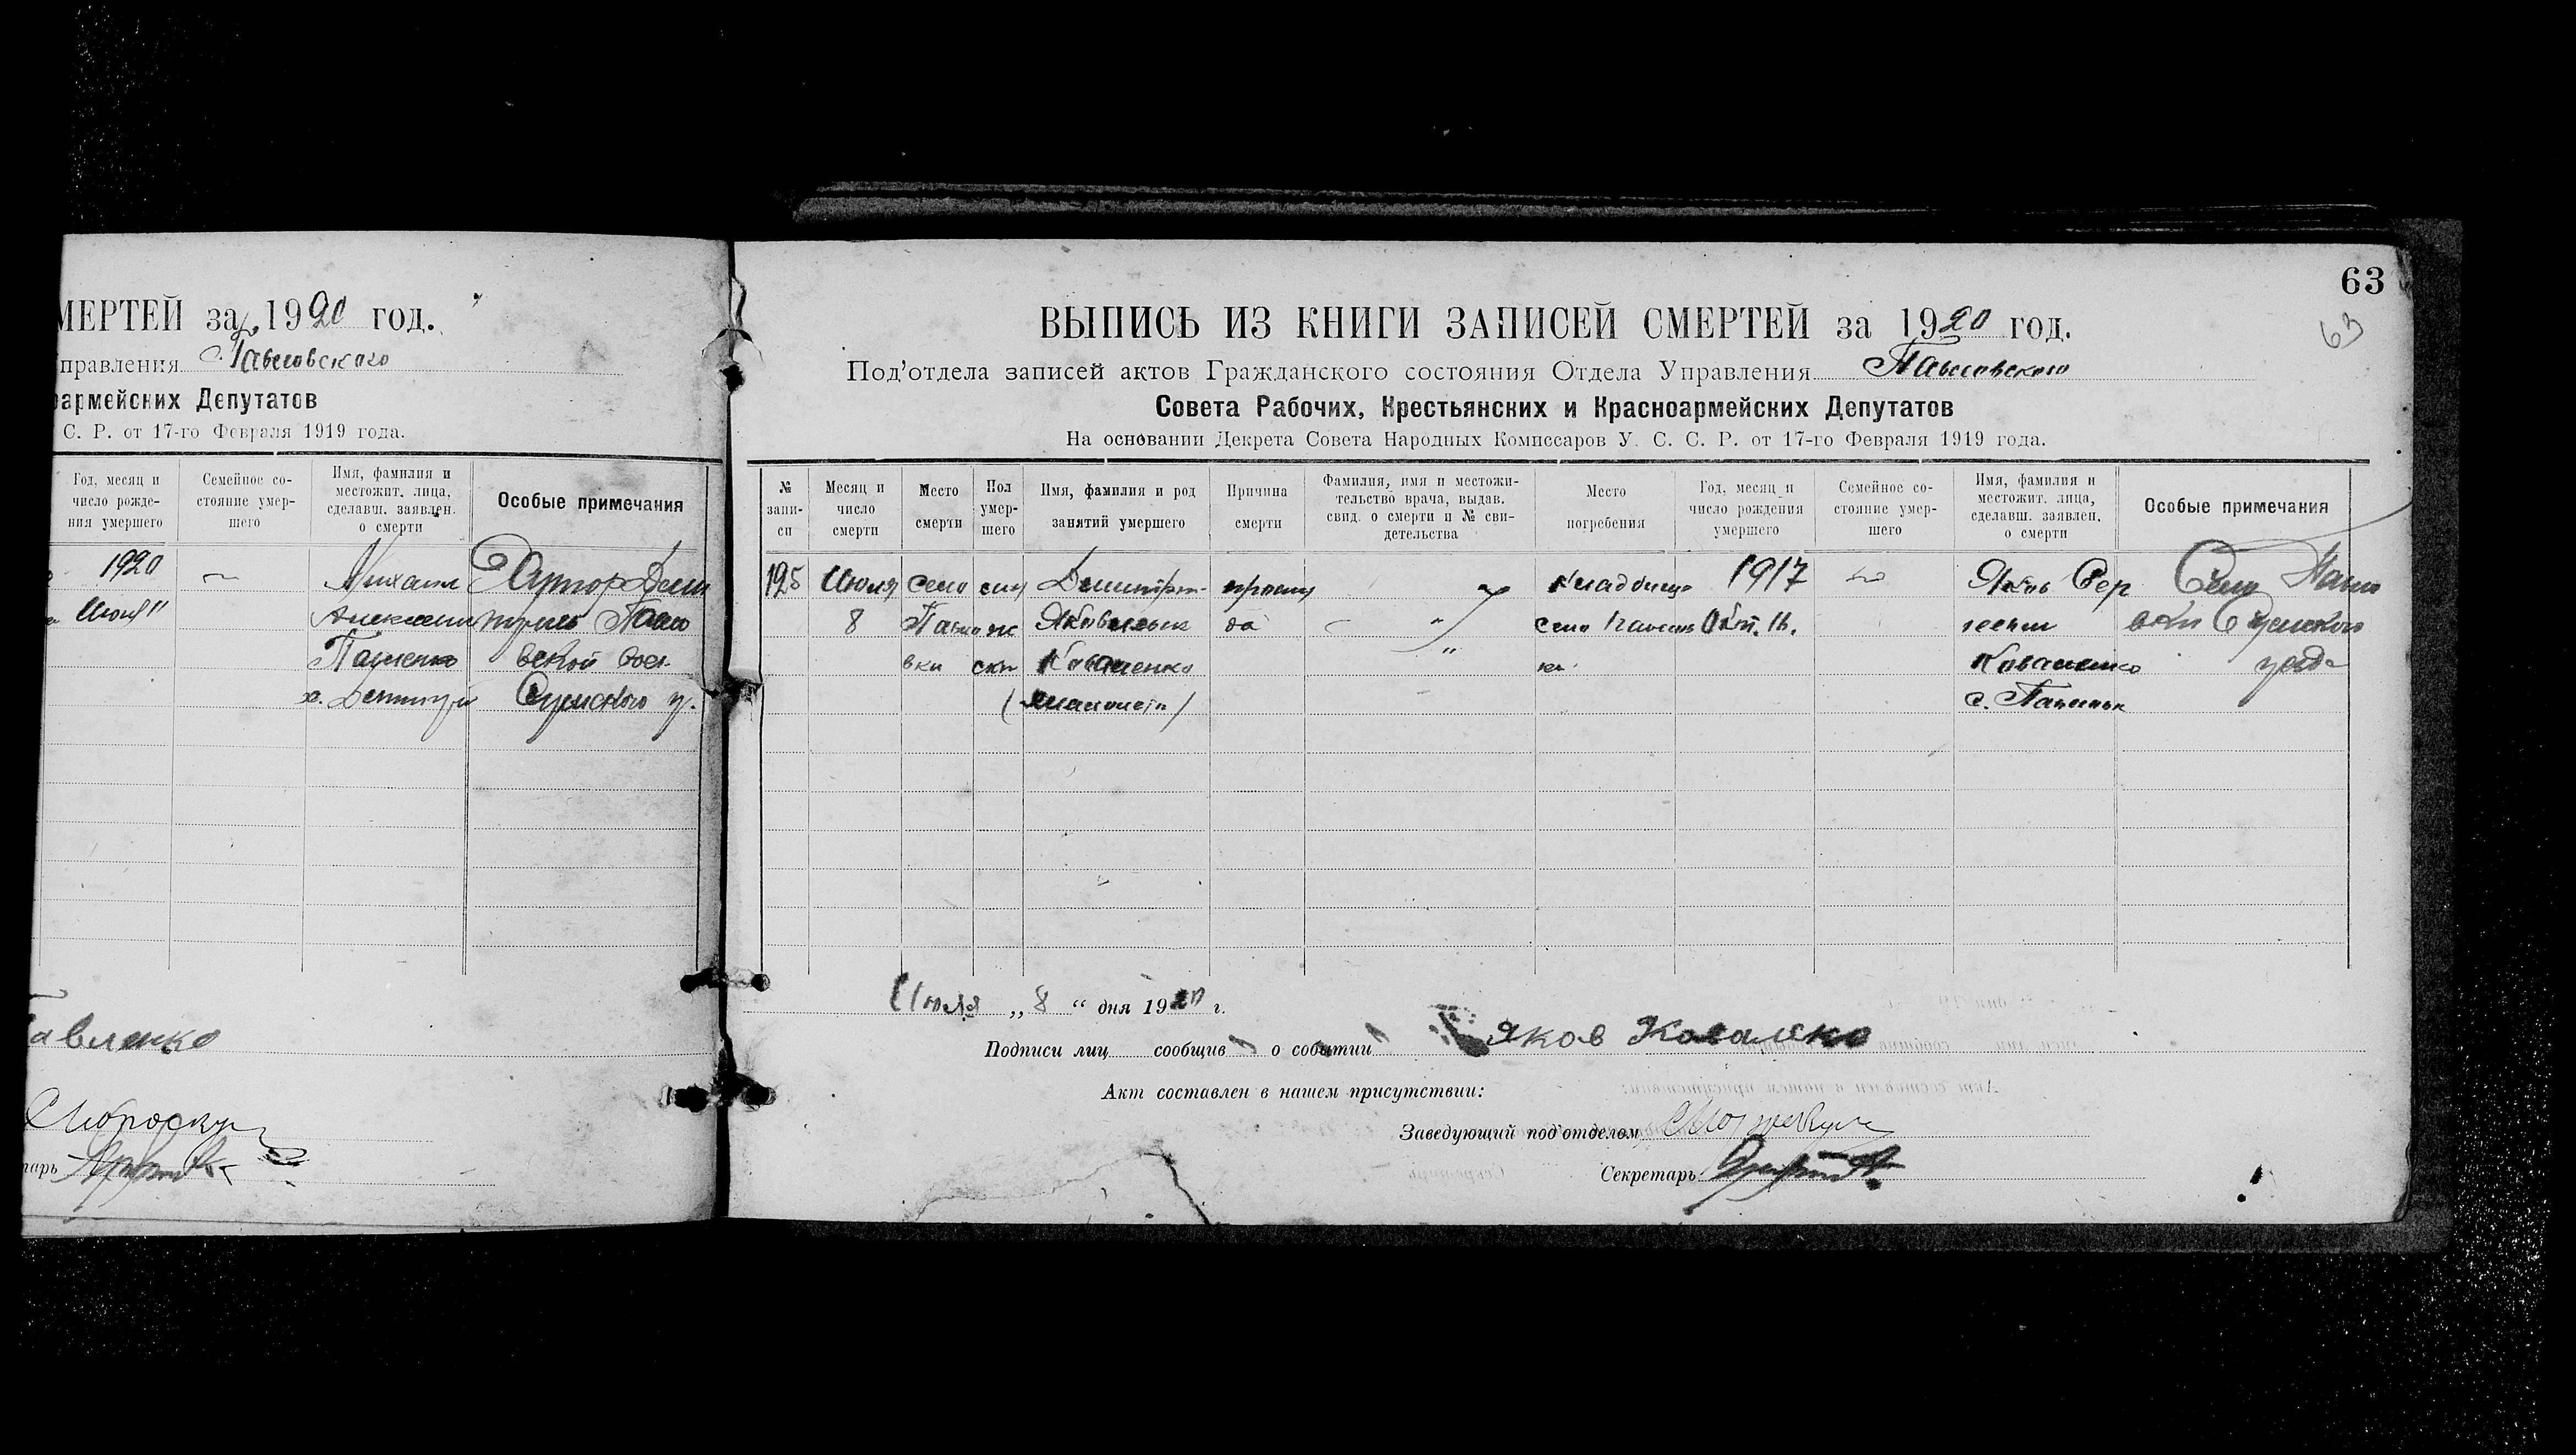 МЕРТЕЙ за 1920 год.
правления Павловского
оармейских Депутатов
С. Р. от 17-го Февраля 1919 года.
Год, месяц и число рожде- ния умершего
Семейное со- стояние умер- шего
Имя, фамилия и местожит. лица, сделавш. заявлен. о смерти
Особые примечания
1920 Михаил
Июня 11
вской вол.
Сумского у.
авленко
63
63
ВЫПИСЬ ИЗ КНИГИ ЗАПИСЕЙ СМЕРТЕЙ за 1920 год.
Под'отдела записей актов Гражданского состояния Отдела Управления Павловского
Совета Рабочих, Крестьянских и Красноармейских Депутатов
На основании Декрета Совета Народных Комиссаров У. С. С. Р. от 17-го Февраля 1919 года.
№ запи- си
Месяц и число смерти
Место смерти
Пол умер- шего
Имя, фамилия и род занятий умершего
Причина смерти
Фамилия, имя и местожи- тельство врача, выдав. свид. о смерти и № сви- детельства
Место погребения
Год, месяц и число рождения умершего
Семейное со- стояние умер- шего
Имя, фамилия и местожит. лица, сделавш. заявлен. о смерти
Особые примечания
125 Июля село Димитрий просту кладбище 1917 Яков Сер Село Павло
8 Павло Яковлевич да село Павлов Окт. 16. геевич вки Сумского
вки Коваленко ки Коваленко уезда
с. Павловк
Июля „ 8 “ дня 1920 г.
Подписи лиц сообщив о событии Яков Коваленко
Акт составлен в нашем присутствии:
Заведующий под'отделом
Секретарь